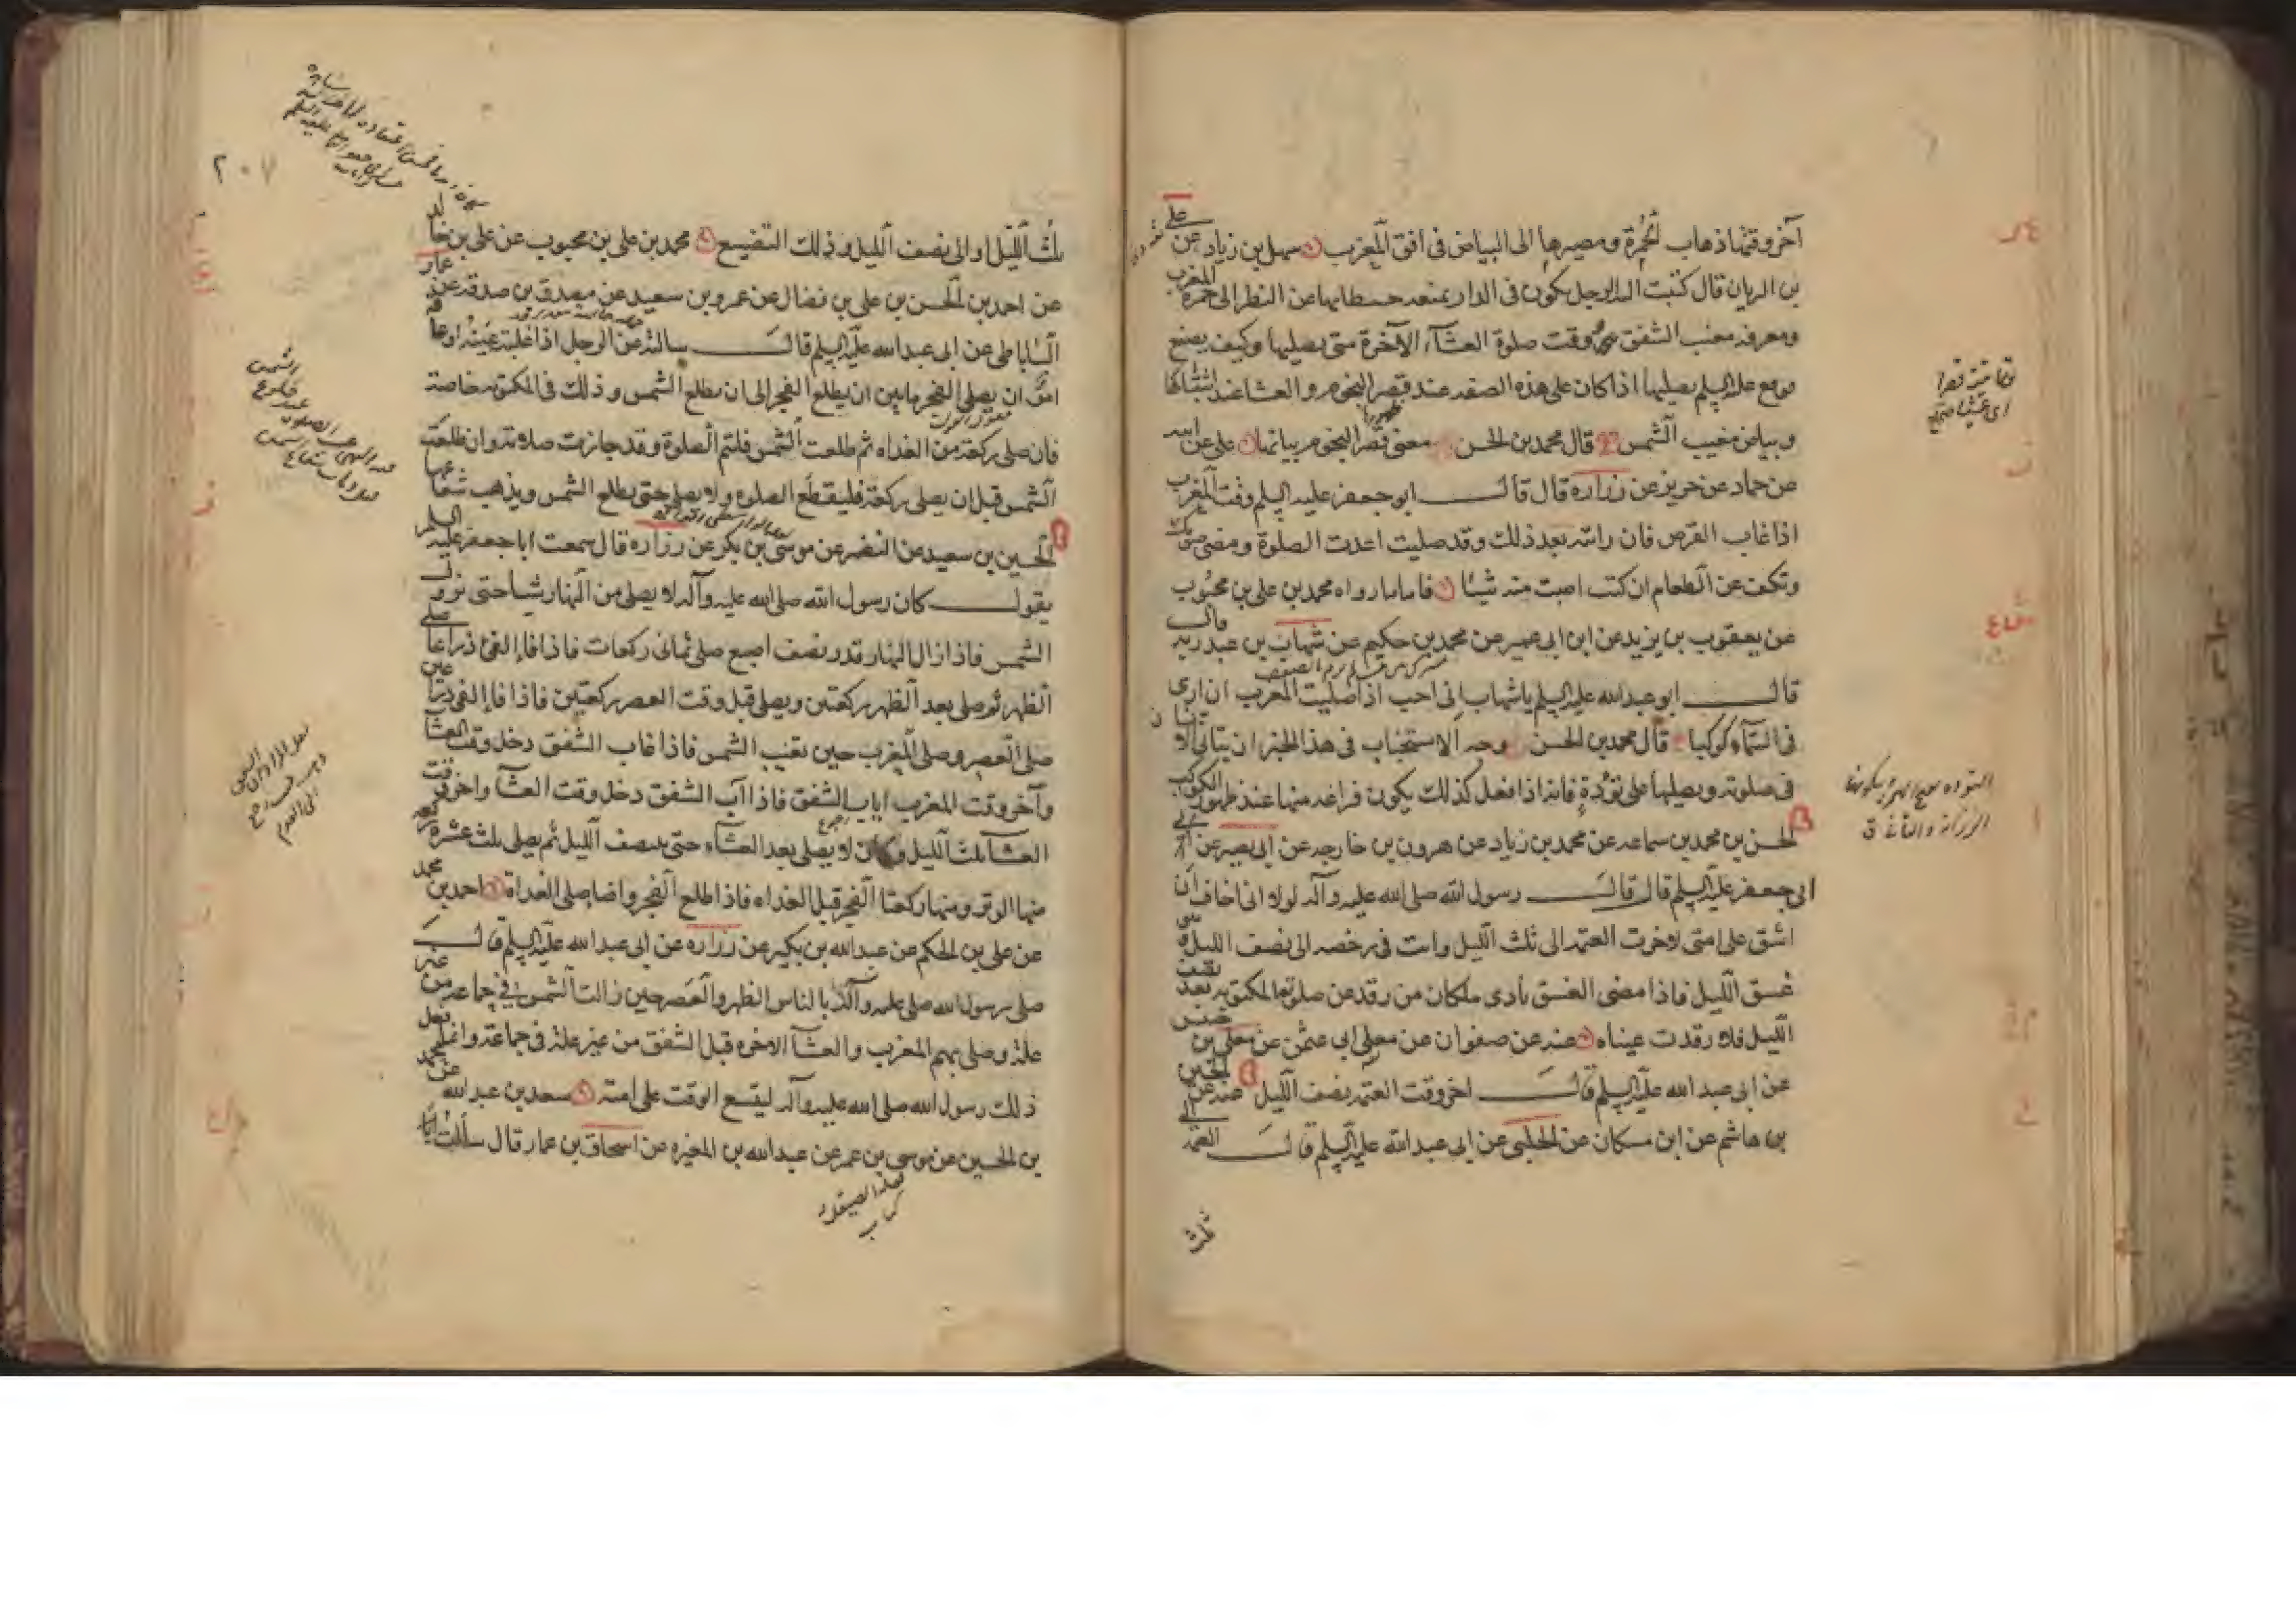 آخر وقتها ذهاب الحمرة ومصيرها الى البياض فى افق المغرب سهل بن زياد عن على
بن الريان قال كتبت اليه الرجل يكون فى الدار يمنعه حيطانها عن النظر الى حمرة المغرب
ومعرفة مغيب الشفق ووقت صلوة العشاء الآخرة متى يصليها وكيف يصنع
فوقع عليه السلم يصليها اذا كان على هذه الصفة عند قصر النجوم والعشا عند اشتباكها
وبياض مغيب الشمس قال محمد بن الحسن معنى قصر النجوم بيانها على عن ابيه
عن حماد عن حريز عن زرارة قال قال ابو جعفر عليه السلم وقت المغرب
اذا غاب القرص فان رايته بعد ذلك وقد صليت اعدت الصلوة ومضى صومك
وتكف عن الطعام ان كنت اصبت منه شيئا فاما ما رواه محمد بن على بن محبوب
عن يعقوب بن يزيد عن ابن ابى عمير عن محمد بن حكيم عن شهاب بن عبد ربه قال
قال ابو عبد الله عليه السلم يا شهاب انى احب اذا صليت المغرب ان ارى
فى السماء كوكبا قال محمد بن الحسن وجه الاستحباب فى هذا الخبر ان يتانى الانسان
فى صلوته ويصليها على تؤدة فانه اذا فعل كذلك يكون فراغه منها عند ظهور الكوكب
الحسن بن محمد بن سماعه عن محمد بن زياد عن هرون بن خارجه عن ابى بصير عن
ابى جعفر عليه السلم قال قال رسول الله صلى الله عليه وآله لولا انى اخاف ان
اشق على امتى لاخرت العتمه الى ثلث الليل وانت فى رخصه الى نصف الليل وهى
غسق الليل فاذا مضى الغسق نادى ملكان من رقد عن صلوته المكتوبه بعد نصف
الليل فلا رقدت عيناه عنه عن صفوان عن معلى ابى عثمن عن معلى بن خنيس
عن ابى عبد الله عليه السلم قال اخر وقت العتمه نصف الليل عنه عن الحسين
بن هاشم عن ابن مسكان عن الحلبى عن ابى عبد الله عليه السلم قال العتمه الى
ثلث
التوده
٢٠٧
ثلث الليل او الى نصف الليل وذلك التضييع محمد بن على بن محبوب عن على بن خالد
عن احمد بن الحسن بن على بن فضال عن عمرو بن سعيد عن مصدق بن صدقة عن عمار
الساباطى عن ابى عبد الله عليه السلم قال سالته عن الرجل اذا غلبته عينه او عاقه
امر ان يصلى الفجر ما بين ان يطلع الفجر الى ان تطلع الشمس وذلك فى المكتوبه خاصة
فان صلى ركعة من الغداه ثم طلعت الشمس فليتم الصلوة وقد جازت صلاته وان طلعت
الشمس قبل ان يصلى ركعة فليقطع الصلوة ولا يصلى حتى يطلع الشمس ويذهب شعاعها
الحسين بن سعيد عن النضر عن موسى بن بكر عن زرارة قال سمعت ابا جعفر عليه السلم
يقول كان رسول الله صلى الله عليه وآله لا يصلى من النهار شيا حتى تزول
الشمس فاذا زال النهار قدر نصف اصبع صلى ثمانى ركعات فاذا فاء الفئ ذراعا صلى
الظهر ثم صلى بعد الظهر ركعتين ويصلى قبل وقت العصر ركعتين فاذا فاء الفئ ذراعين
صلى العصر وصلى المغرب حين تغيب الشمس فاذا غاب الشفق دخل وقت العشا
وآخر وقت المغرب اياب الشفق فاذا آب الشفق دخل وقت العشا واخر وقت
العشا ثلث الليل وكان لا يصلى بعد العشاء حتى ينتصف الليل ثم يصلى ثلث عشره ركعه
منها الوتر ومنها ركعتا الفجر قبل الغداه فاذا طلع الفجر واضا صلى الغداة احمد بن محمد
عن على بن الحكم عن عبد الله بن بكير عن زرارة عن ابى عبد الله عليه السلم قال
صلى رسول الله صلى الله عليه وآله بالناس الظهر والعصر حين زالت الشمس فى جماعه من غير
علة وصلى بهم المغرب والعشا الاخره قبل الشفق من غير علة فى جماعة وانما فعل
ذلك رسول الله صلى الله عليه وآله ليتسع الوقت على امته سعد بن عبد الله عن محمد
بن الحسين عن موسى بن عمر عن عبد الله بن المغيره عن اسحاق بن عمار قال سألت ابا